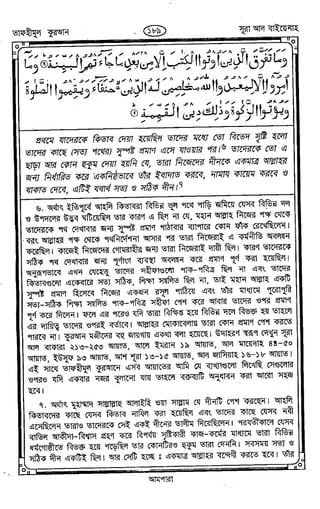 তাফহীমুল কুরআন
১৮৯
সূরা আল বাইয়েনাহ
وَمَا تَفَرَّقَ الَّذِينَ أُوتُوا الْكِتٰبَ إِلَّا مِنْ بَعْدِ مَا جَاءَتْهُمُ الْبَيِّنَةُ ۞ وَمَا
أُمِرُوا إِلَّا لِيَعْبُدُوا اللَّهَ مُخْلِصِينَ لَهُ الدِّينَ حُنَفَاءَ وَيُقِيمُوا الصَّلٰوةَ
وَيُؤْتُوا الزَّكٰوةَ وَذٰلِكَ دِينُ الْقَيِّمَةِ ۞
প্রথমে যাদেরকে কিতাব দেয়া হয়েছিল তাদের মধ্যে তো বিভেদ সৃষ্টি হলো
তাদের কাছে (সত্য পথের) সুস্পষ্ট প্রমাণ এসে যাওয়ার পর।৬ তাদেরকে তো এ
ছাড়া আর কোন হুকুম দেয়া হয়নি যে, তারা নিজেদের দীনকে একমাত্র আল্লাহর
জন্য নির্ধারিত করে একনিষ্ঠভাবে তাঁর ইবাদাত করবে, নামায কায়েম করবে ও
যাকাত দেবে, এটিই যথার্থ সত্য ও সঠিক দীন।৭
৬. অর্থাৎ ইতিপূর্বে আহলি কিতাবরা বিভিন্ন ভুল পথে পাড়ি জমিয়ে যেসব বিভিন্ন দল
ও উপদলের উদ্ভব ঘটিয়েছিল তার কারণ এ ছিল না যে, মহান আল্লাহ নিজের পক্ষ থেকে
তাদেরকে পথ দেখাবার জন্য সুস্পষ্ট প্রমাণ পাঠাবার ব্যাপারে কোন ফাঁক রেখেছিলেন।
বরং আল্লাহর পক্ষ থেকে পথনির্দেশনা আসার পর তারা নিজেরাই এ কর্মনীতি অবলম্বন
করেছিল। কাজেই নিজেদের গোমরাহীর জন্য তারা নিজেরাই দায়ী ছিল। কারণ তাদেরকে
সঠিক পথ দেখাবার জন্য পূর্ণাংগ ব্যবস্থা অবলম্বন করে প্রমাণ পূর্ণ করা হয়েছিল।
অনুরূপভাবে এখন যেহেতু তাদের সহীফাগুলো পাক-পবিত্র ছিল না এবং তাদের
কিতাবগুলো একেবারে সত্য, সঠিক, শিক্ষা সম্বলিত ছিল না, তাই মহান আল্লাহ একটি
সুস্পষ্ট প্রমাণ হিসেবে নিজের একজন রসূল পাঠিয়ে এবং তাঁর মাধ্যমে পুরোপুরি
সত্য-সঠিক শিক্ষা সম্বলিত পাক-পবিত্র সহীফা পেশ করে আবার তাদের ওপর প্রমাণ
পূর্ণ করে দিলেন। ফলে এর পরেও যদি তারা বিক্ষিপ্ত হয়ে বিভিন্ন দলে বিভক্ত হয় তাহলে
এর দায়িত্ব তাদের ওপরই বর্তাবে। আল্লাহর মোকাবেলায় তারা কোন প্রমাণ পেশ করতে
পারবে না। কুরআন মজীদের বহু জায়গায় একথা বলা হয়েছে। উদাহরণ স্বরূপ দেখুন সূরা
আল বাকারাহ ২১৩-২৫৩ আয়াত, আলে ইমরান ১৯ আয়াত, আল মায়েদাহ ৪৪-৫০
আয়াত, ইউনুস ৯৩ আয়াত, আশ শূরা ১৩-১৫ আয়াত, আল জাসিয়াহ ১৬-১৮ আয়াত।
এই সাথে তাফহীমুল কুরআনে এসব আয়াতের আমি যে ব্যাখ্যাগুলো লিখেছি সেগুলোর
ওপরও যদি একবার নজর বুলানো যায় তাহলে বক্তব্যটি অনুধাবন করা আরো সহজ
হবে।
৭. অর্থাৎ মুহাম্মাদ সাল্লাল্লাহু আলাইহি ওয়া সাল্লাম যে দীনটি পেশ করছেন। আহলি
কিতাবদের কাছে যেসব কিতাব নাযিল করা হয়েছিল এবং তাদের কাছে যেসব নবী
এসেছিলেন তারাও তাদেরকে সেই একই দীনের তালীম দিয়েছিলেন। পরবর্তীকালে যেসব
বাতিল আকীদা-বিশ্বাস গ্রহণ করে বিপর্যয় সৃষ্টিকারী কাজ-কর্মের মাধ্যমে তারা বিভিন্ন
ধর্মগোষ্ঠীতে বিভক্ত হয়ে পড়েছিল তার কোনটিরও হুকুম তারা দেননি। সবসময় সত্য ও
সঠিক দীন একটিই ছিল। আর সেটি হচ্ছে : একমাত্র আল্লাহর বন্দেগী করতে হবে। তাঁর
আমপারা